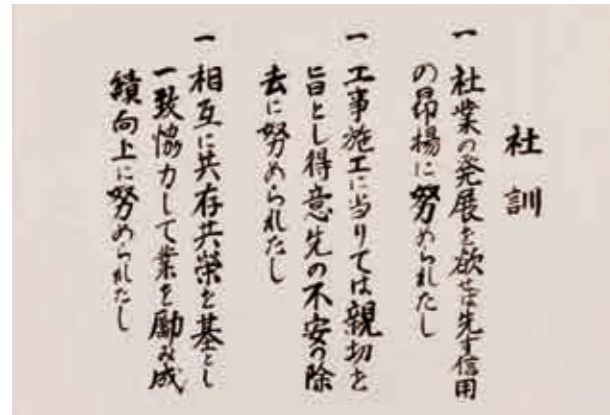 社訓
一 社業の発展を欲せば先ず信用
の昂揚に努められたし
一 工事施工に当りては親切を
旨とし得意先の不安の除
去に努められたし
一 相互に共存共榮を基とし
一致協力して業を励み成
績向上に努められたし